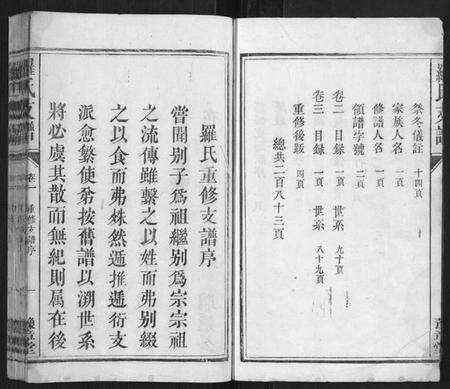 祭冬儀註　十四頁
家族人名　一頁
修譜人名　一頁
領譜字號　三頁
卷二　目錄　一頁　世系　九十頁
卷三　目錄　一頁　世系　八十九頁
重修後跋　四頁
總共二百八十三頁
羅氏支譜
卷一　重修支譜序
羅氏重修支譜序
嘗聞别子為祖繼别為宗宗祖
之流傳雖繫之以姓而弗别綴
之以食而弗殊然遞推遞衍支
派愈繁使弟按舊譜以溯世系
將必虞其散而無紀則属在後